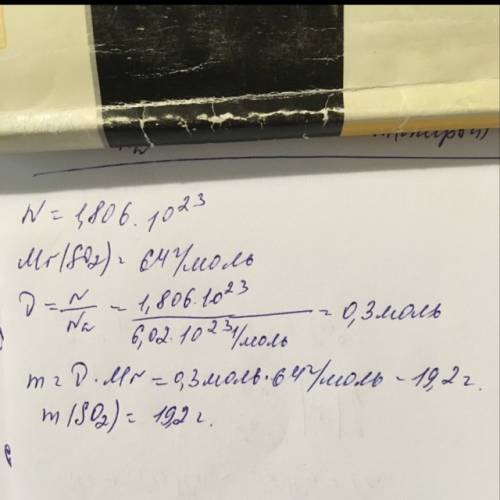 N = 1,806 · 10²³
Mr(SO₂) = 64 г/моль
υ = N/Nₐ = 1,806·10²³/6,02·10²³ 1/моль = 0,3 моль
m = υ · Mr = 0,3 моль · 64 г/моль = 19,2 г.
m(SO₂) = 19,2 г.